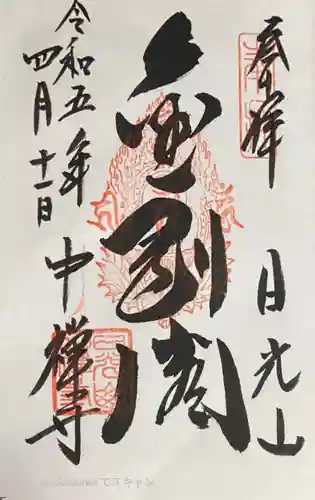 奉拝
日光山
金剛閣
令和五年
四月十一日
中禪寺
でスキャン